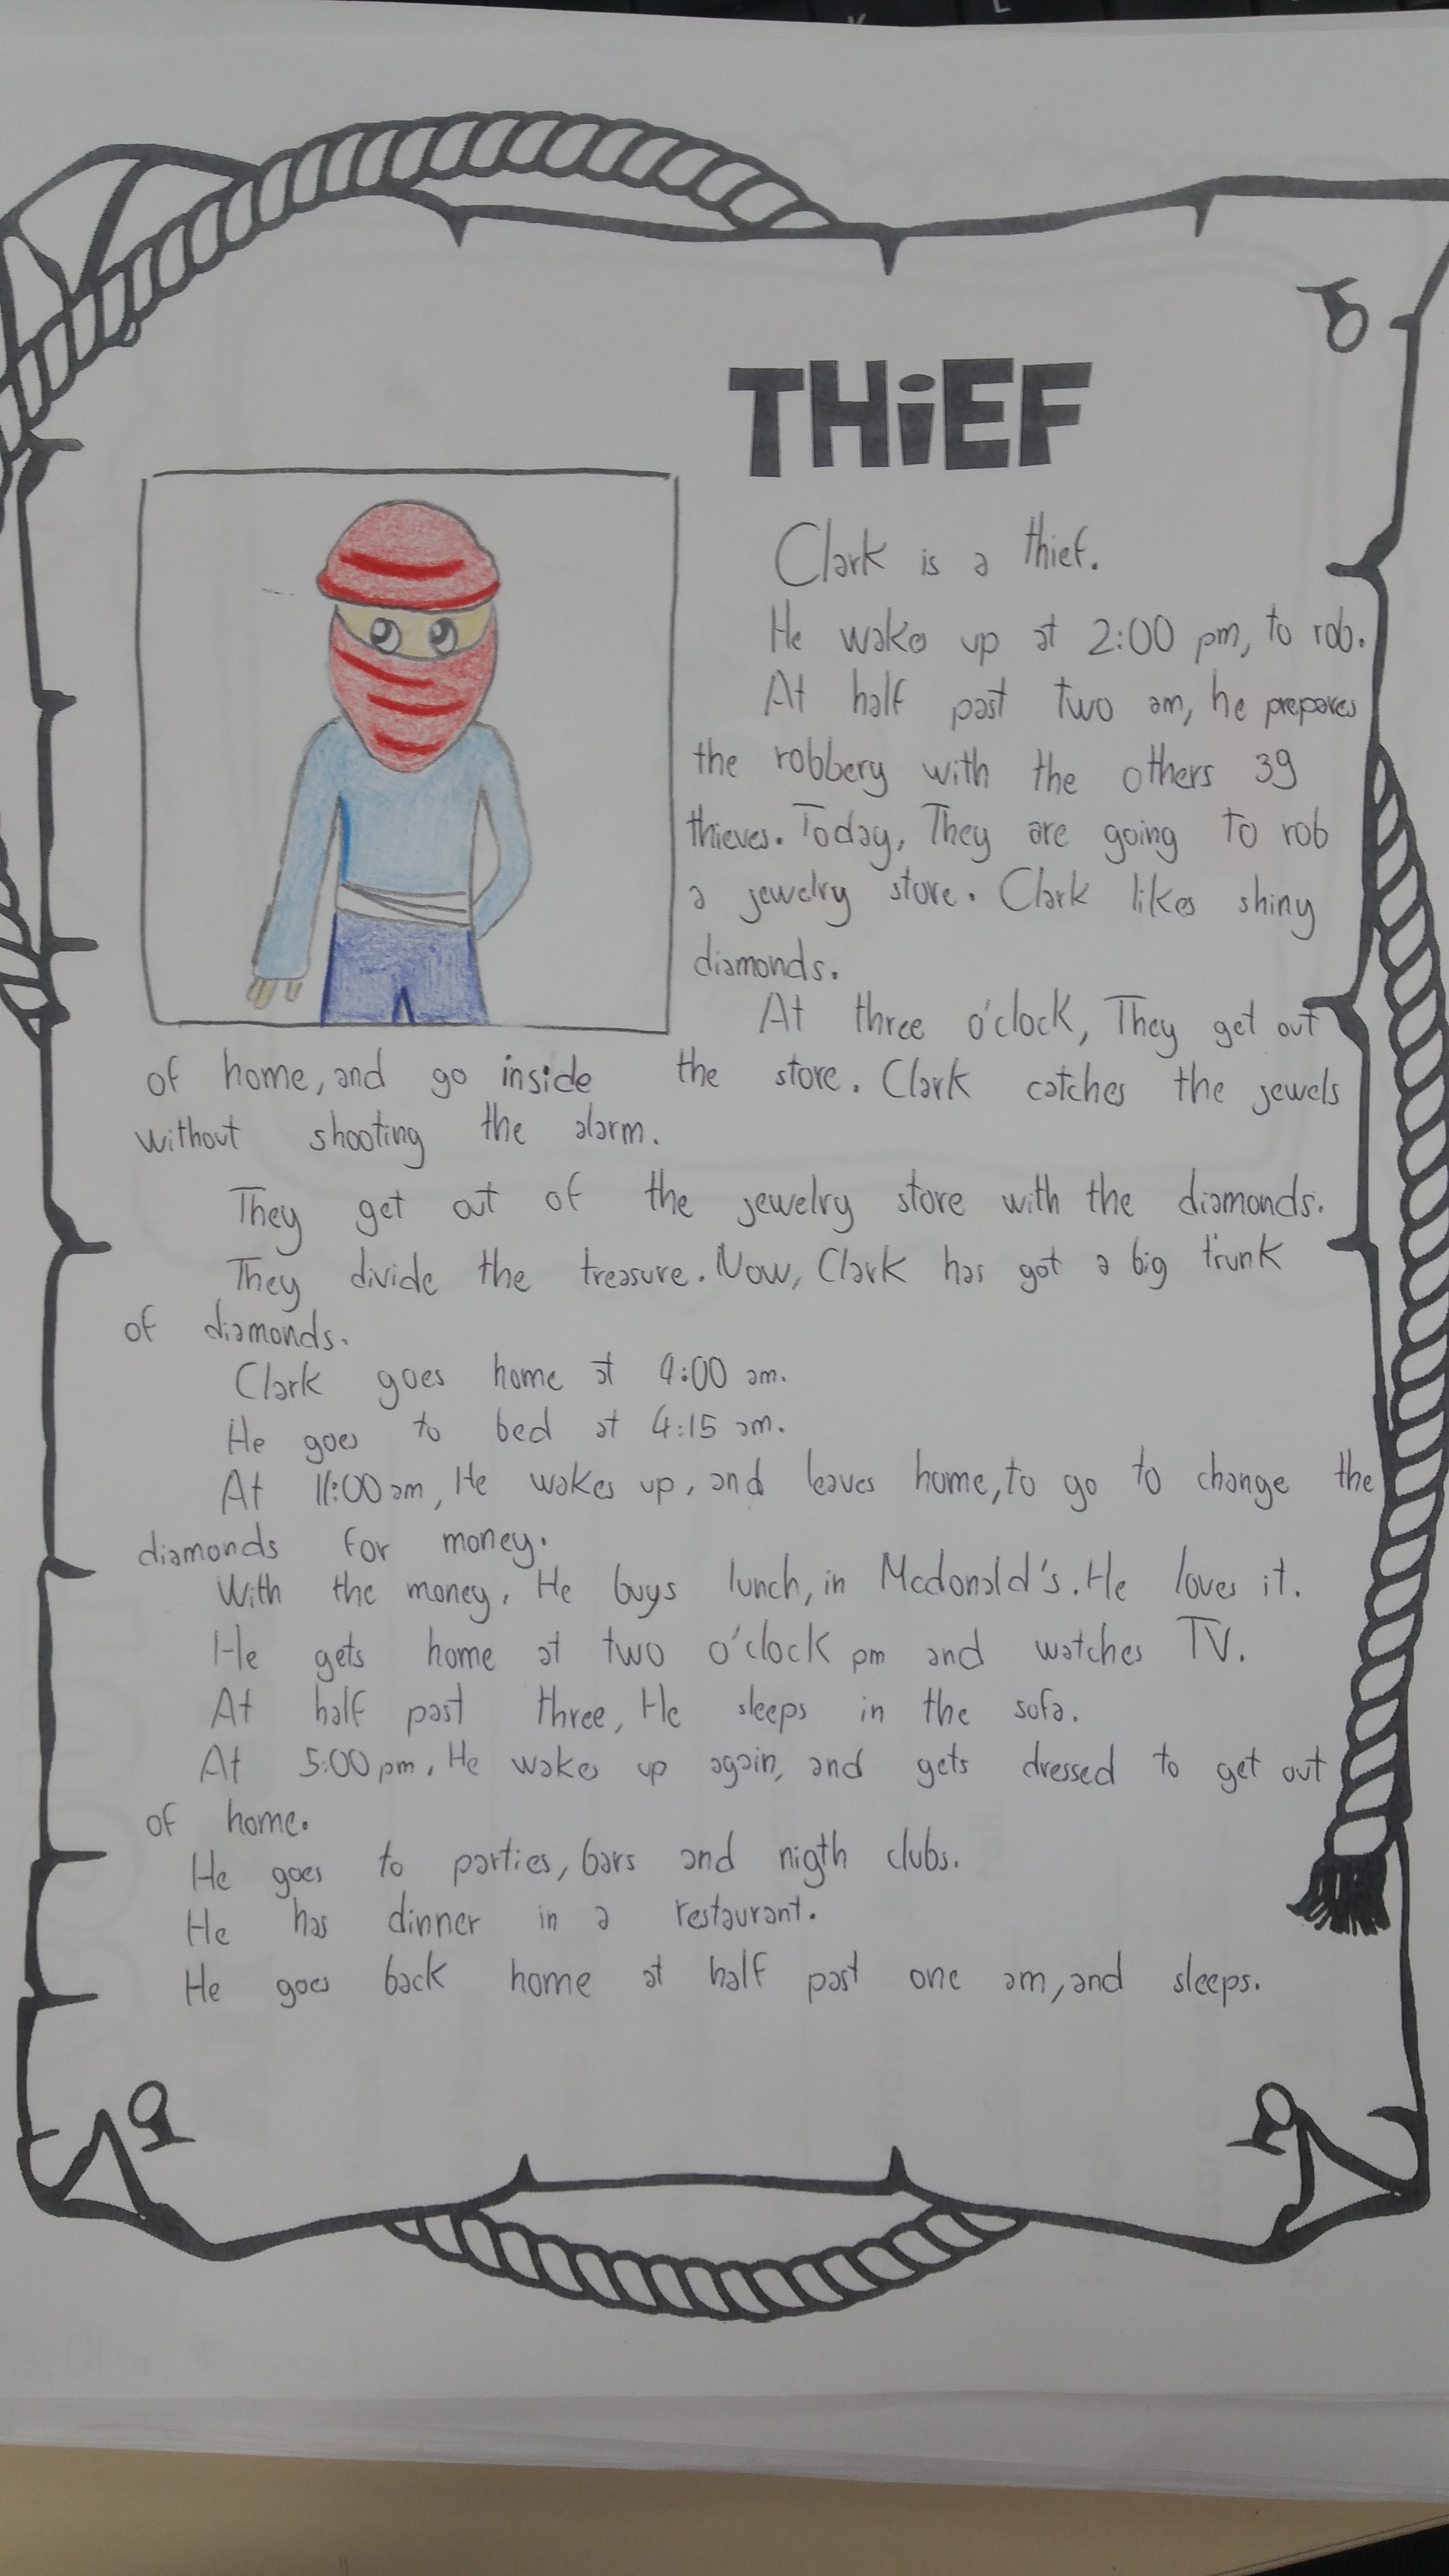 THiEF
Clark is a thief.
He wakes up at 2:00 pm, to rob.
At half past two am, he prepares
the robbery with the others 39
thieves. Today, They are going to rob
a jewelry store. Clark likes shiny
diamonds.
At three o'clock, They get out
of home, and go inside the store. Clark catches the jewels
without shooting the alarm.
They get out of the jewelry store with the diamonds.
They divide the treasure. Now, Clark has got a big trunk
of diamonds.
Clark goes home at 4:00 am.
He goes to bed at 4:15 am.
At 11:00 am, He wakes up, and leaves home, to go to change the
diamonds for money.
With the money, He buys lunch, in Mcdonald's. He loves it.
He gets home at two o'clock pm and watches TV.
At half past three, He sleeps in the sofa.
At 5:00 pm, He wakes up again, and gets dressed to get out
of home.
He goes to parties, bars and nigth clubs.
He has dinner in a restaurant.
He goes back home at half past one am, and sleeps.